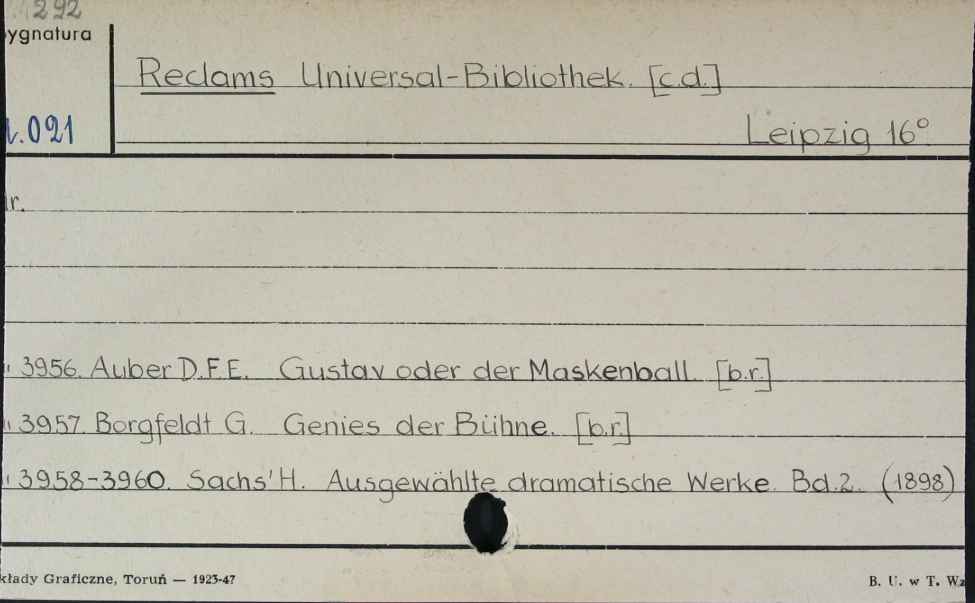 292
ygnatura
Reclams Universal-Bibliothek. [c.d.]
.021
Leipzig 16°
r.
" 3956. Auber D.F.E. Gustav oder der Maskenball. [b.r.]
" 3957. Borgfeldt G. Genies der Bühne. [b.r.]
" 3958-3960. Sachs' H. Ausgewählte dramatische Werke. Bd.2. (1898)
kłady Graficzne, Toruń — 1923-47
B. U. w T. Wz